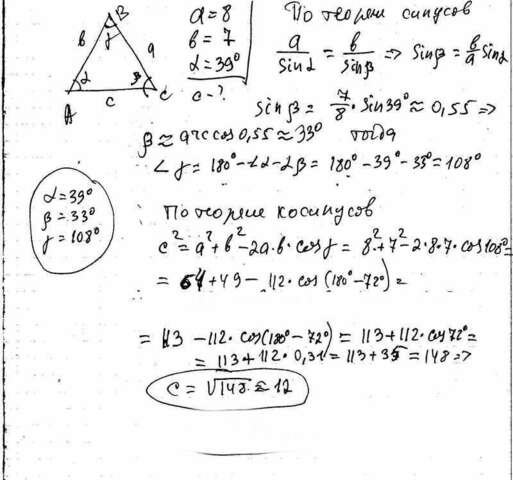 B
в γ a
α β
A c C
a = 8
в = 7
α = 39°
c - ?
По теореме синусов
a/sinα = в/sinβ => sinβ = в/a sinα
sinβ = 7/8 · sin39° ≈ 0,55 =>
β ≈ arccos 0,55 ≈ 33° тогда
∠γ = 180° - ∠α - ∠β = 180° - 39° - 33° = 108°
α = 39°
β = 33°
γ = 108°
По теореме косинусов
c² = a² + в² - 2a·в·cosγ = 8² + 7² - 2·8·7·cos108° =
= 64 + 49 - 112·cos(180° - 72°) =
= 113 - 112·cos(180° - 72°) = 113 + 112·cos72° =
= 113 + 112·0,31 = 113 + 35 = 148 =>
c = √148 ≈ 12